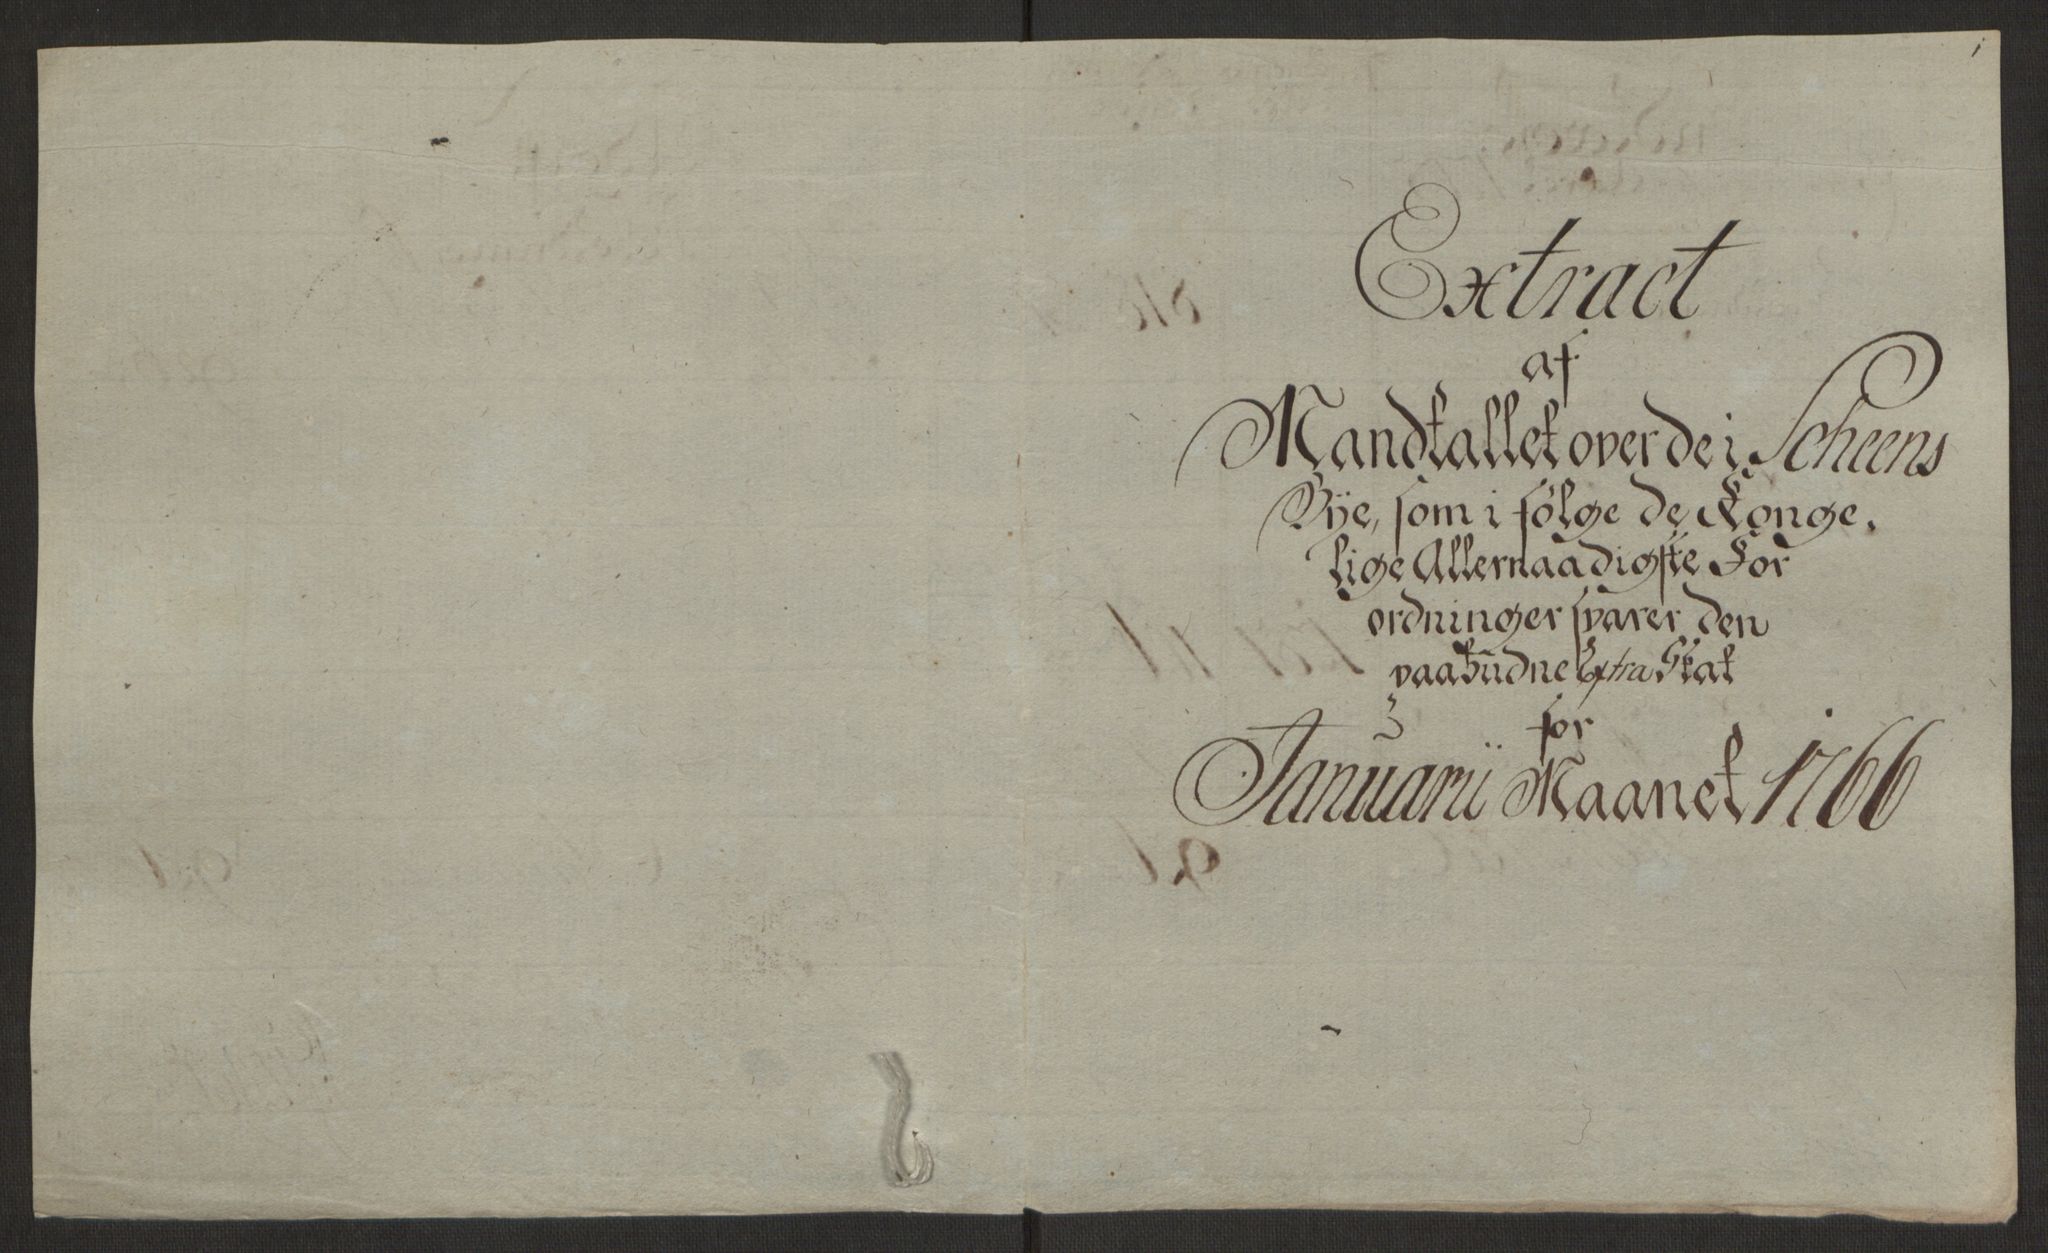 1
Extract
af
Mandtallet over de i Scheens
Bÿe, som i følge de Konge-
lige Allernaadigste For
ordninger svarer den
paabudne Extra Skat
for
Januarii Maanet 1766